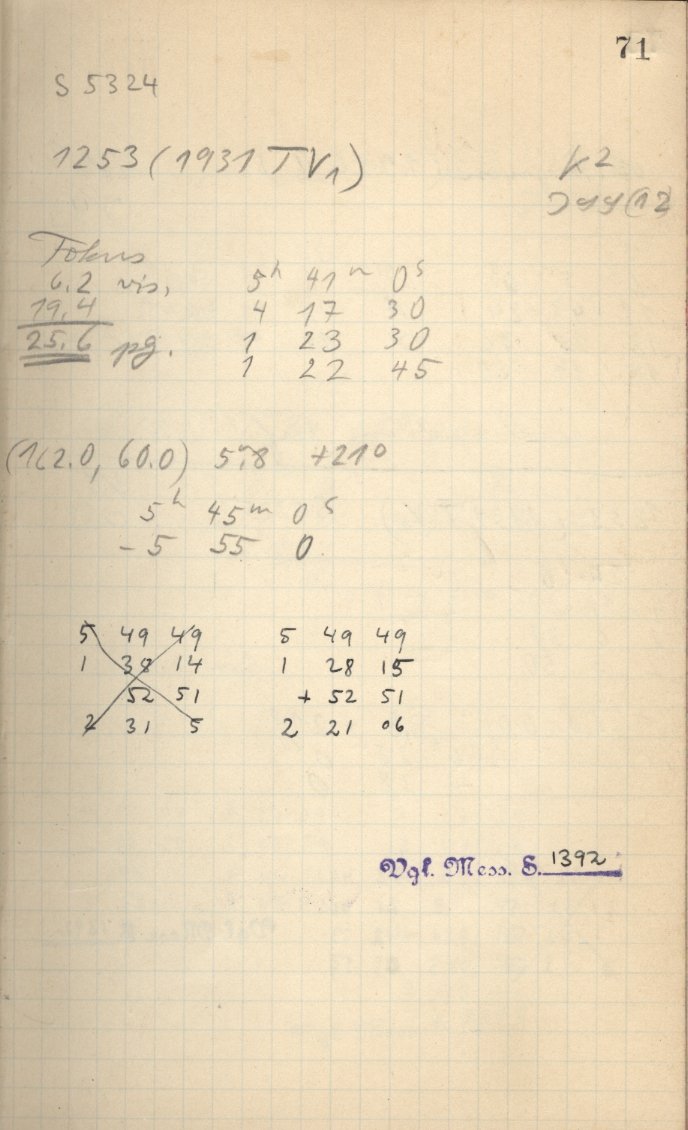 71
S 5324
1253 (1931 TV₁)
K2
Fokus
6.2 vis.
19.4
25.6 pg.
5ʰ 41ᵐ 0ˢ
4 17 30
1 23 30
1 22 45
(162.0, 60.0) 5ᵐ.8 +21°
5ʰ 45ᵐ 0ˢ
-5 55 0
5 49 49
1 38 14
52 51
2 31 5
5 49 49
1 28 15
+ 52 51
2 21 06
Vgl. Mess. S. 1392